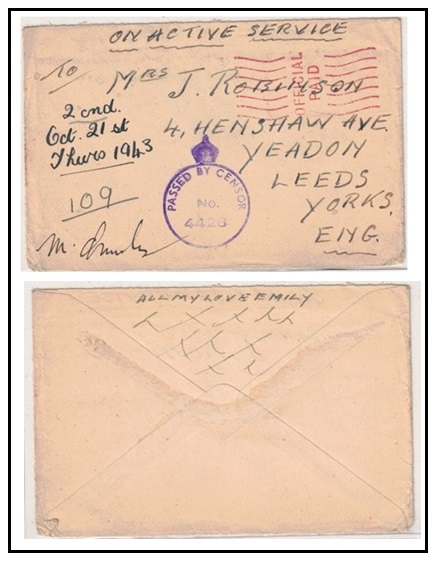 ON ACTIVE SERVICE
To
MRS J. ROBINSON
4, HENSHAW AVE.
YEADON
LEEDS
YORKS.
ENG.
OFFICIAL
PAID
2 cnd.
Oct. 21 st
Thurs 1943
109
PASSED BY CENSOR
No.
4428
M.
ALL MY LOVE EMILY